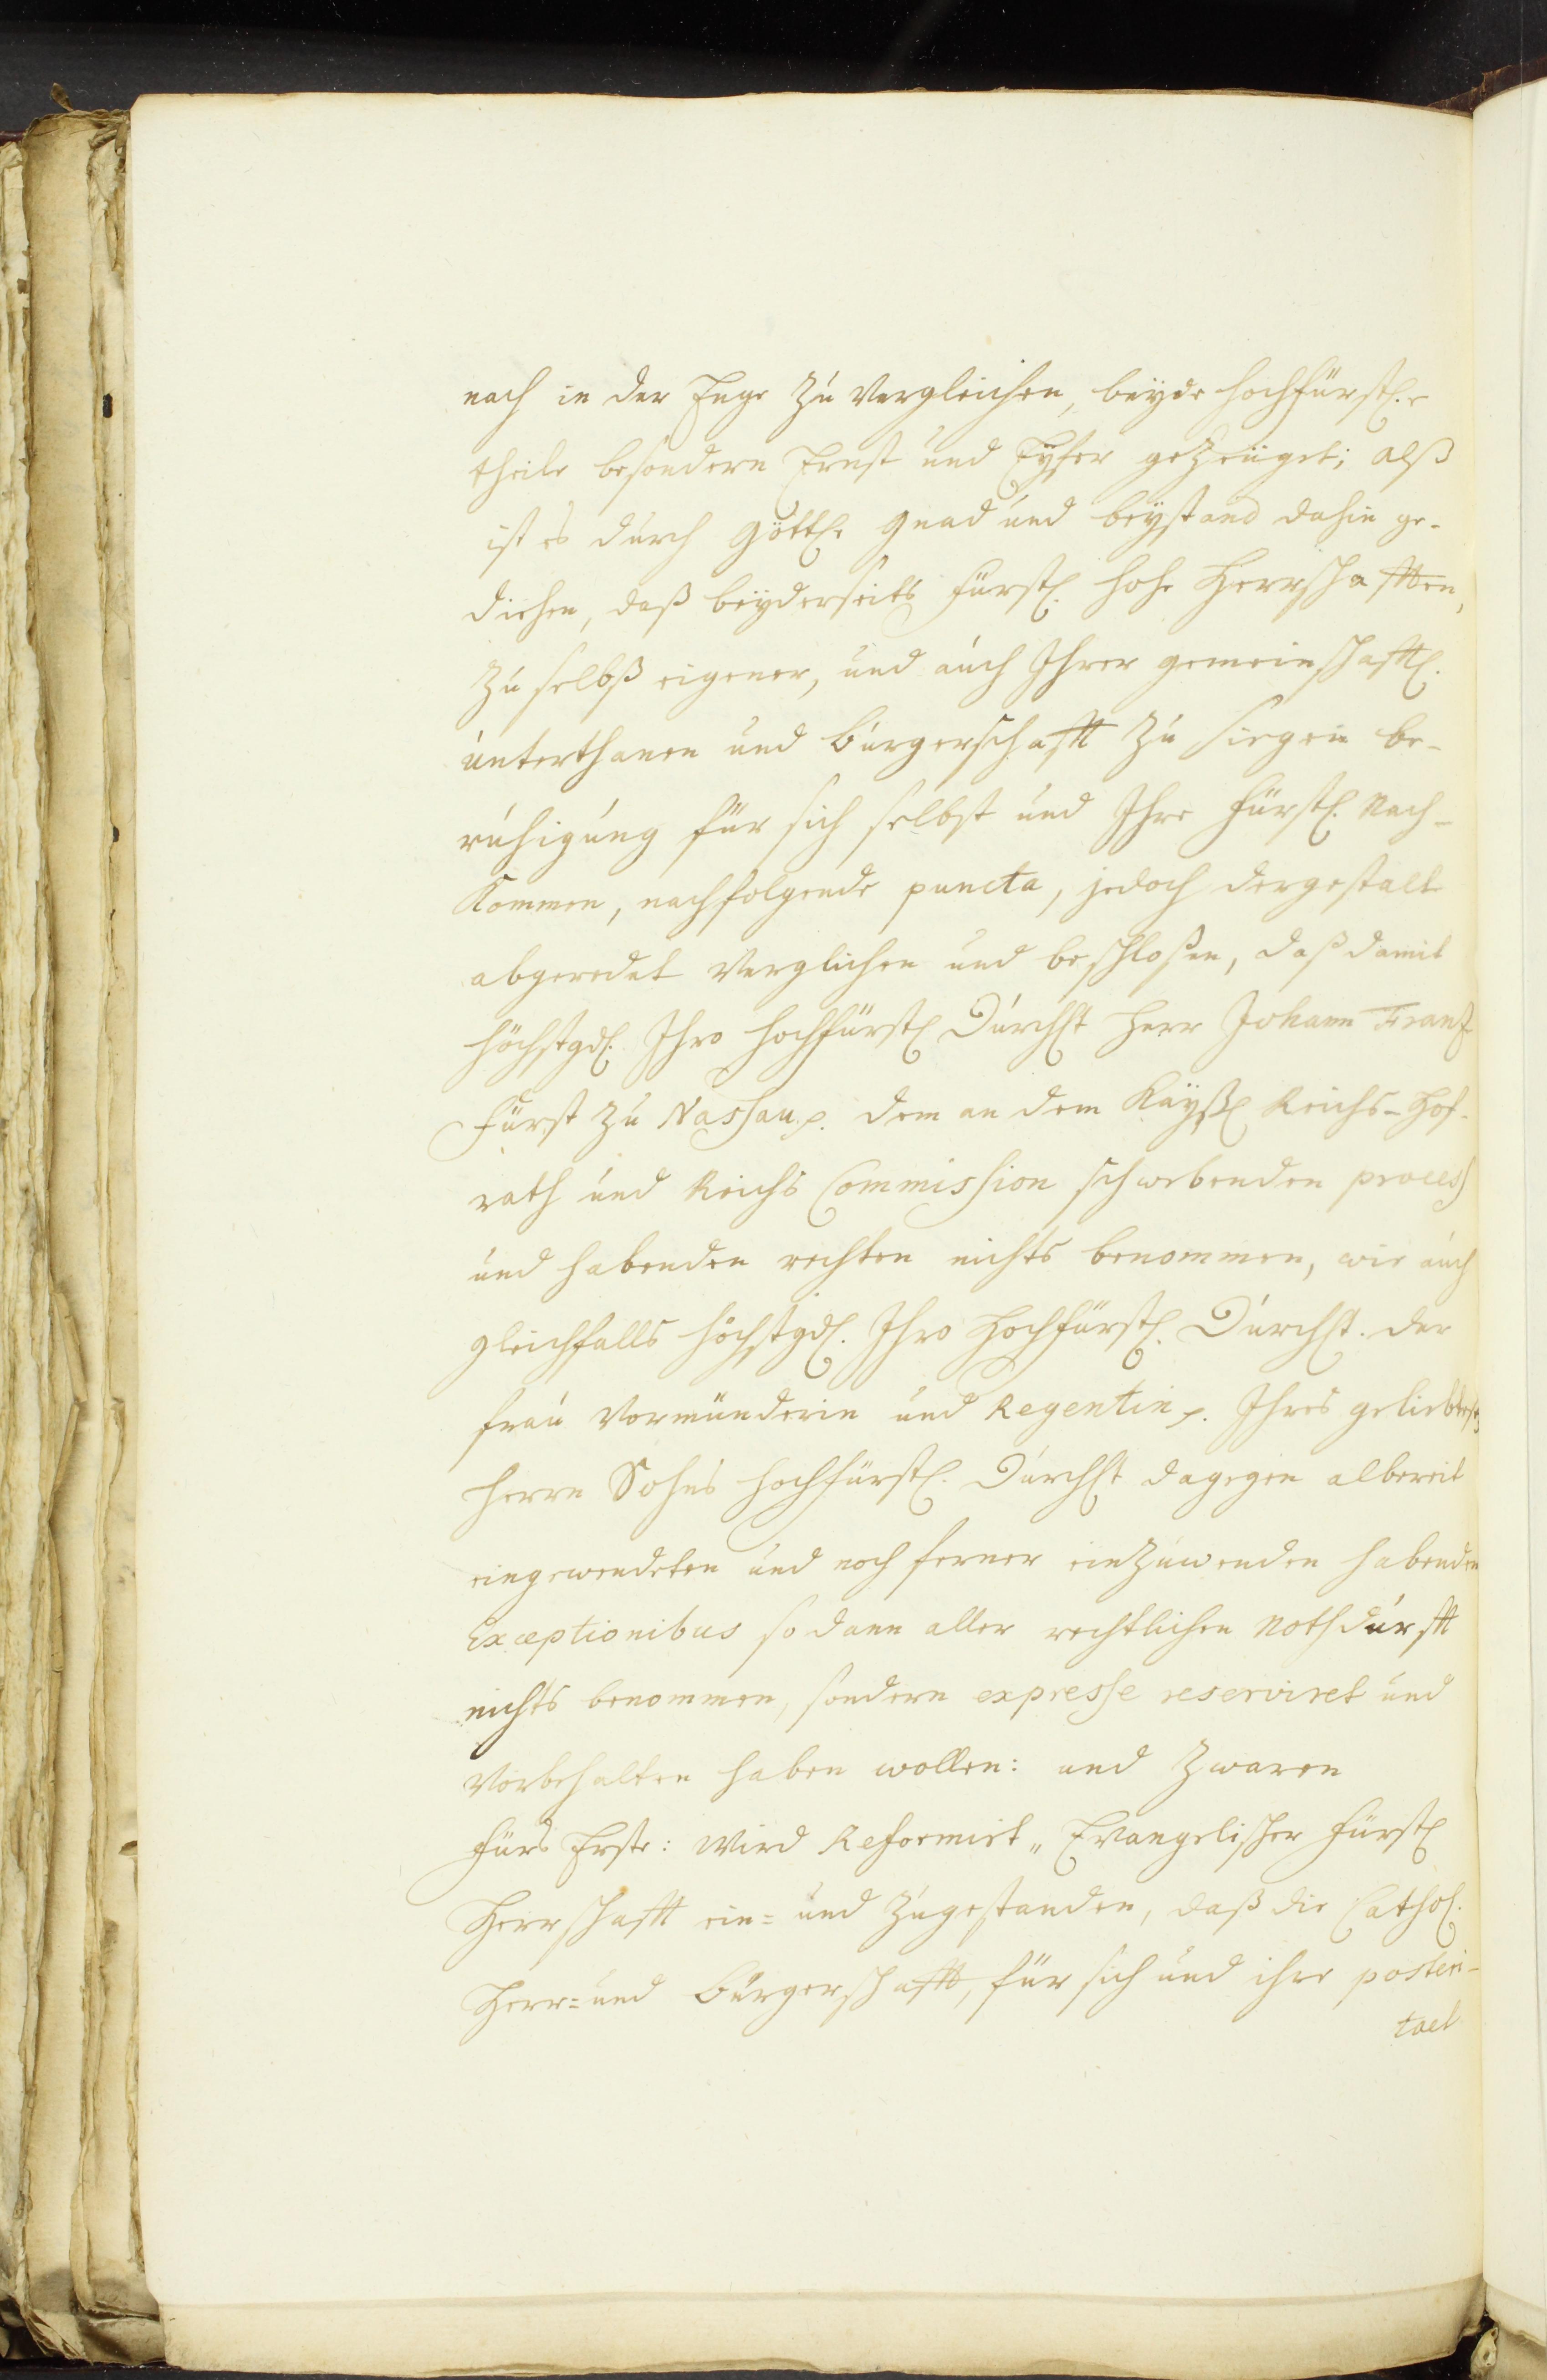 nach in der Enge zu Vergleichen, beyde hochfürstl.e
theile besondern Ernst und Eyfer gezeüget; alß
ist es durch Göttl. gnad und beystand dahin ge-
diehen, daß beyderseits Fürstl. hohe Herrschafften,
zu selbß eigener, und auch Ihrer gemeinschafftl.
unterthanen und bürgerschafft zu siegen be-
ruhigung für sich selbst und Ihre Fürstl. Nach-
kommen, nachfolgende puncta, jedoch dergestalt
abgeredet Verglichen und beschloßen, daß damit
höchstgdl. Ihro hochfürstl. Durchlt Herr Johann Frantz
Fürst zu Nassau p. dem an dem Kayßl Reichs-Hof-
rath und Reichs Commission schwebenden process
und habenden rechten nichts benommen, wie auch
gleichfalls höchstgdl. Ihro Hochfürstl. Durchlt. der
frau Vormünderin und Regentin p. Ihres geliebtest
Herrn Sohns hochfürstl. Durchlt dagegen albereit
eingewendeten und noch ferner einzuwenden habenden
Exceptionibus so dann aller rechtlichen Nothdurfft
nichts benommen, sondern expresse reserviret und
Vorbehalten haben wollen: und zwaren
fürs Erste: Wird Reformirt„ Evangelischer Fürstl
Herrschafft ein= und zugestanden, daß die Cathol.
Herr= und Bürgerschafft, für sich und ihre posteri-
taet